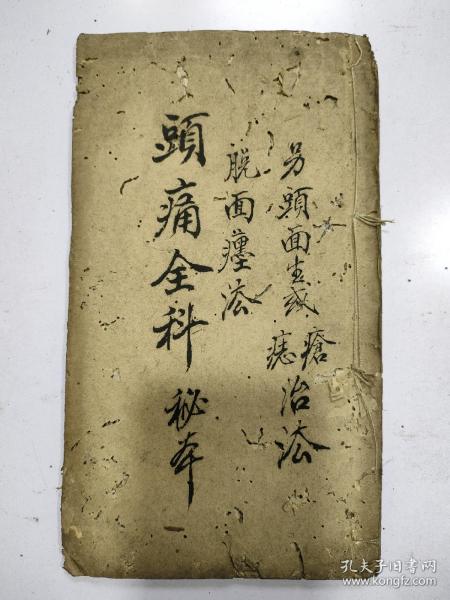 另頭面生或瘡痣治法
脱面癦法
頭痛全科秘本
孔夫子旧书网
www.kongfz.com